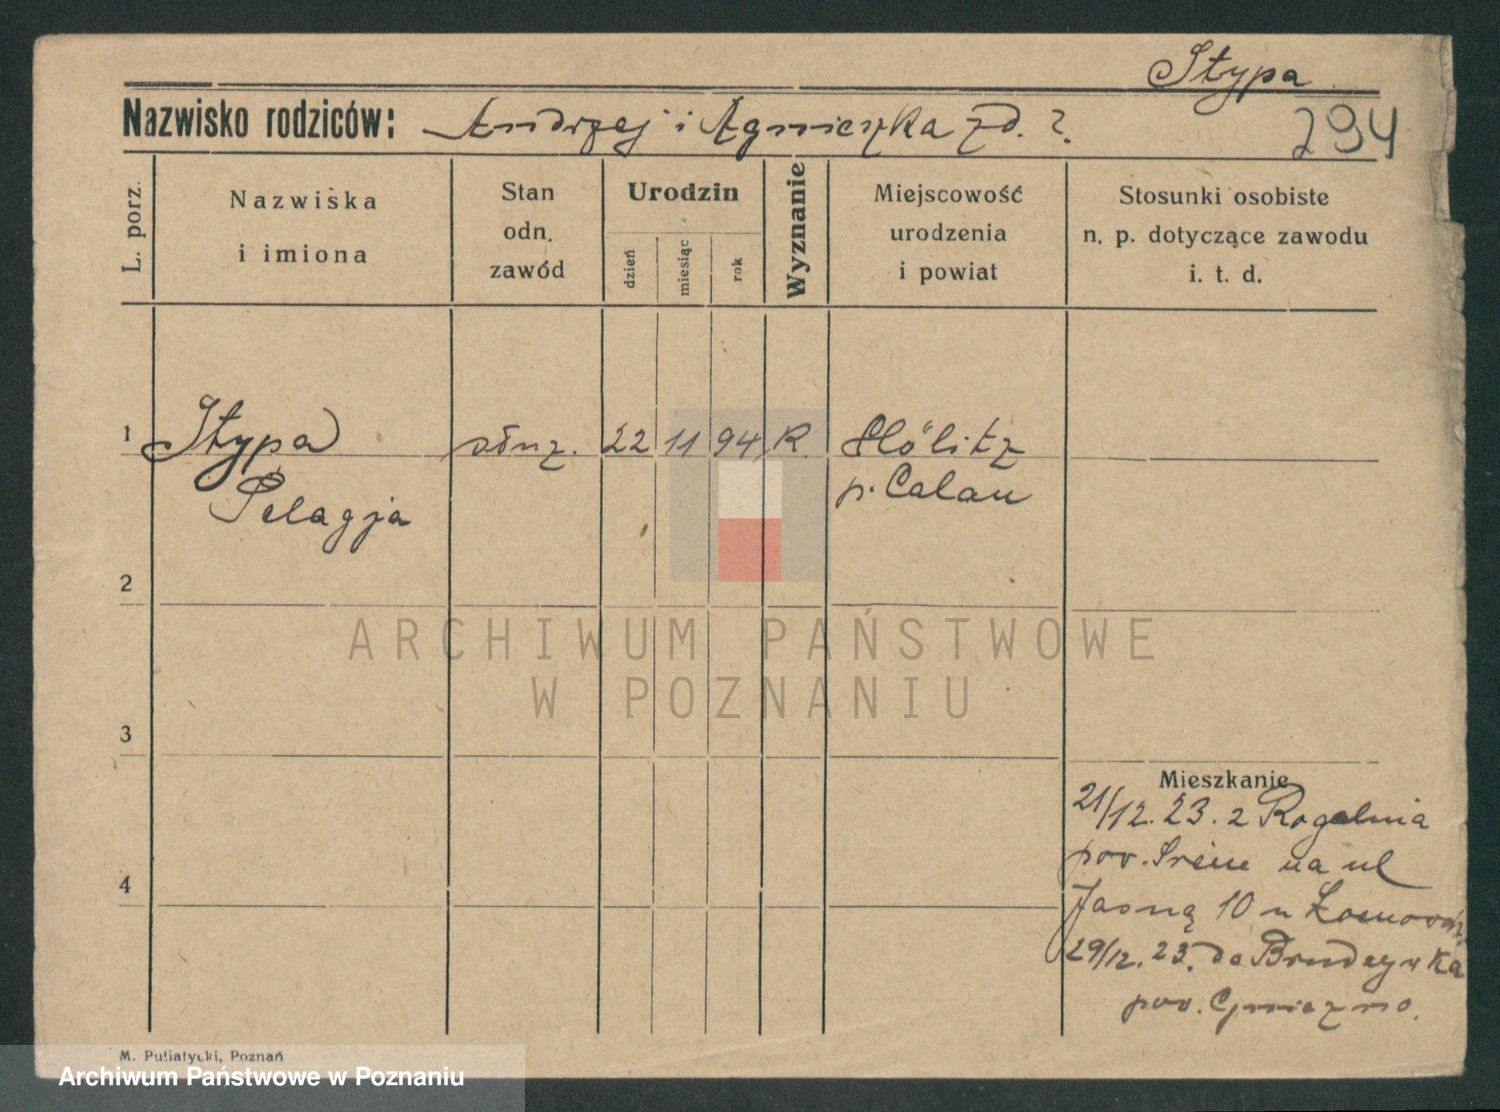 Stypa
Nazwisko rodziców: Andrzej i Agnieszka zd. ?.
294
L. porz.
Nazwiska
i imiona
Stan
odn.
zawód
Urodzin
dzień
miesiąc
rok
Wyznanie
Miejscowość
urodzenia
i powiat
Stosunki osobiste
n. p. dotyczące zawodu
i. t. d.
1 Stypa służ. 22 11 94 R.
Pelagja p. Calau
2
ARCHIWUM PAŃSTWOWE
W POZNANIU
3
Mieszkanie
21/12. 23. z Rogalinia
pow. Śrem na ul
4
Jasną 10 u
29/12. 23. do
pow. Gniezno.
M. Putiatycki, Poznań
Archiwum Państwowe w Poznaniu